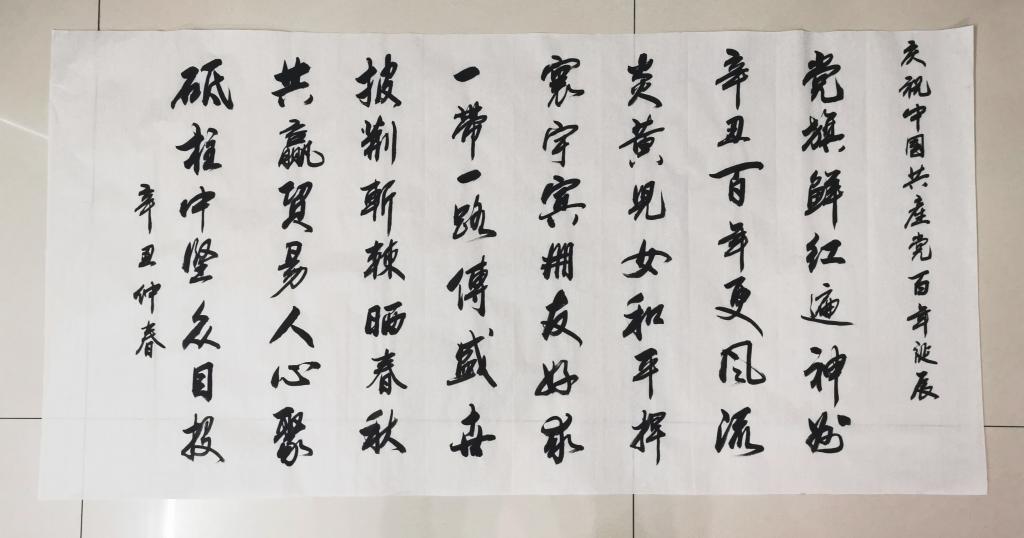 庆祝中国共產党百年诞辰
党旗鲜红遍神州
辛丑百年更风流
炎黄児女和平捍
寰宇宾朋友好求
一带一路傳盛世
披荆斬棘晒春秋
共赢贸易人心聚
砥柱中坚众目投
辛丑仲春